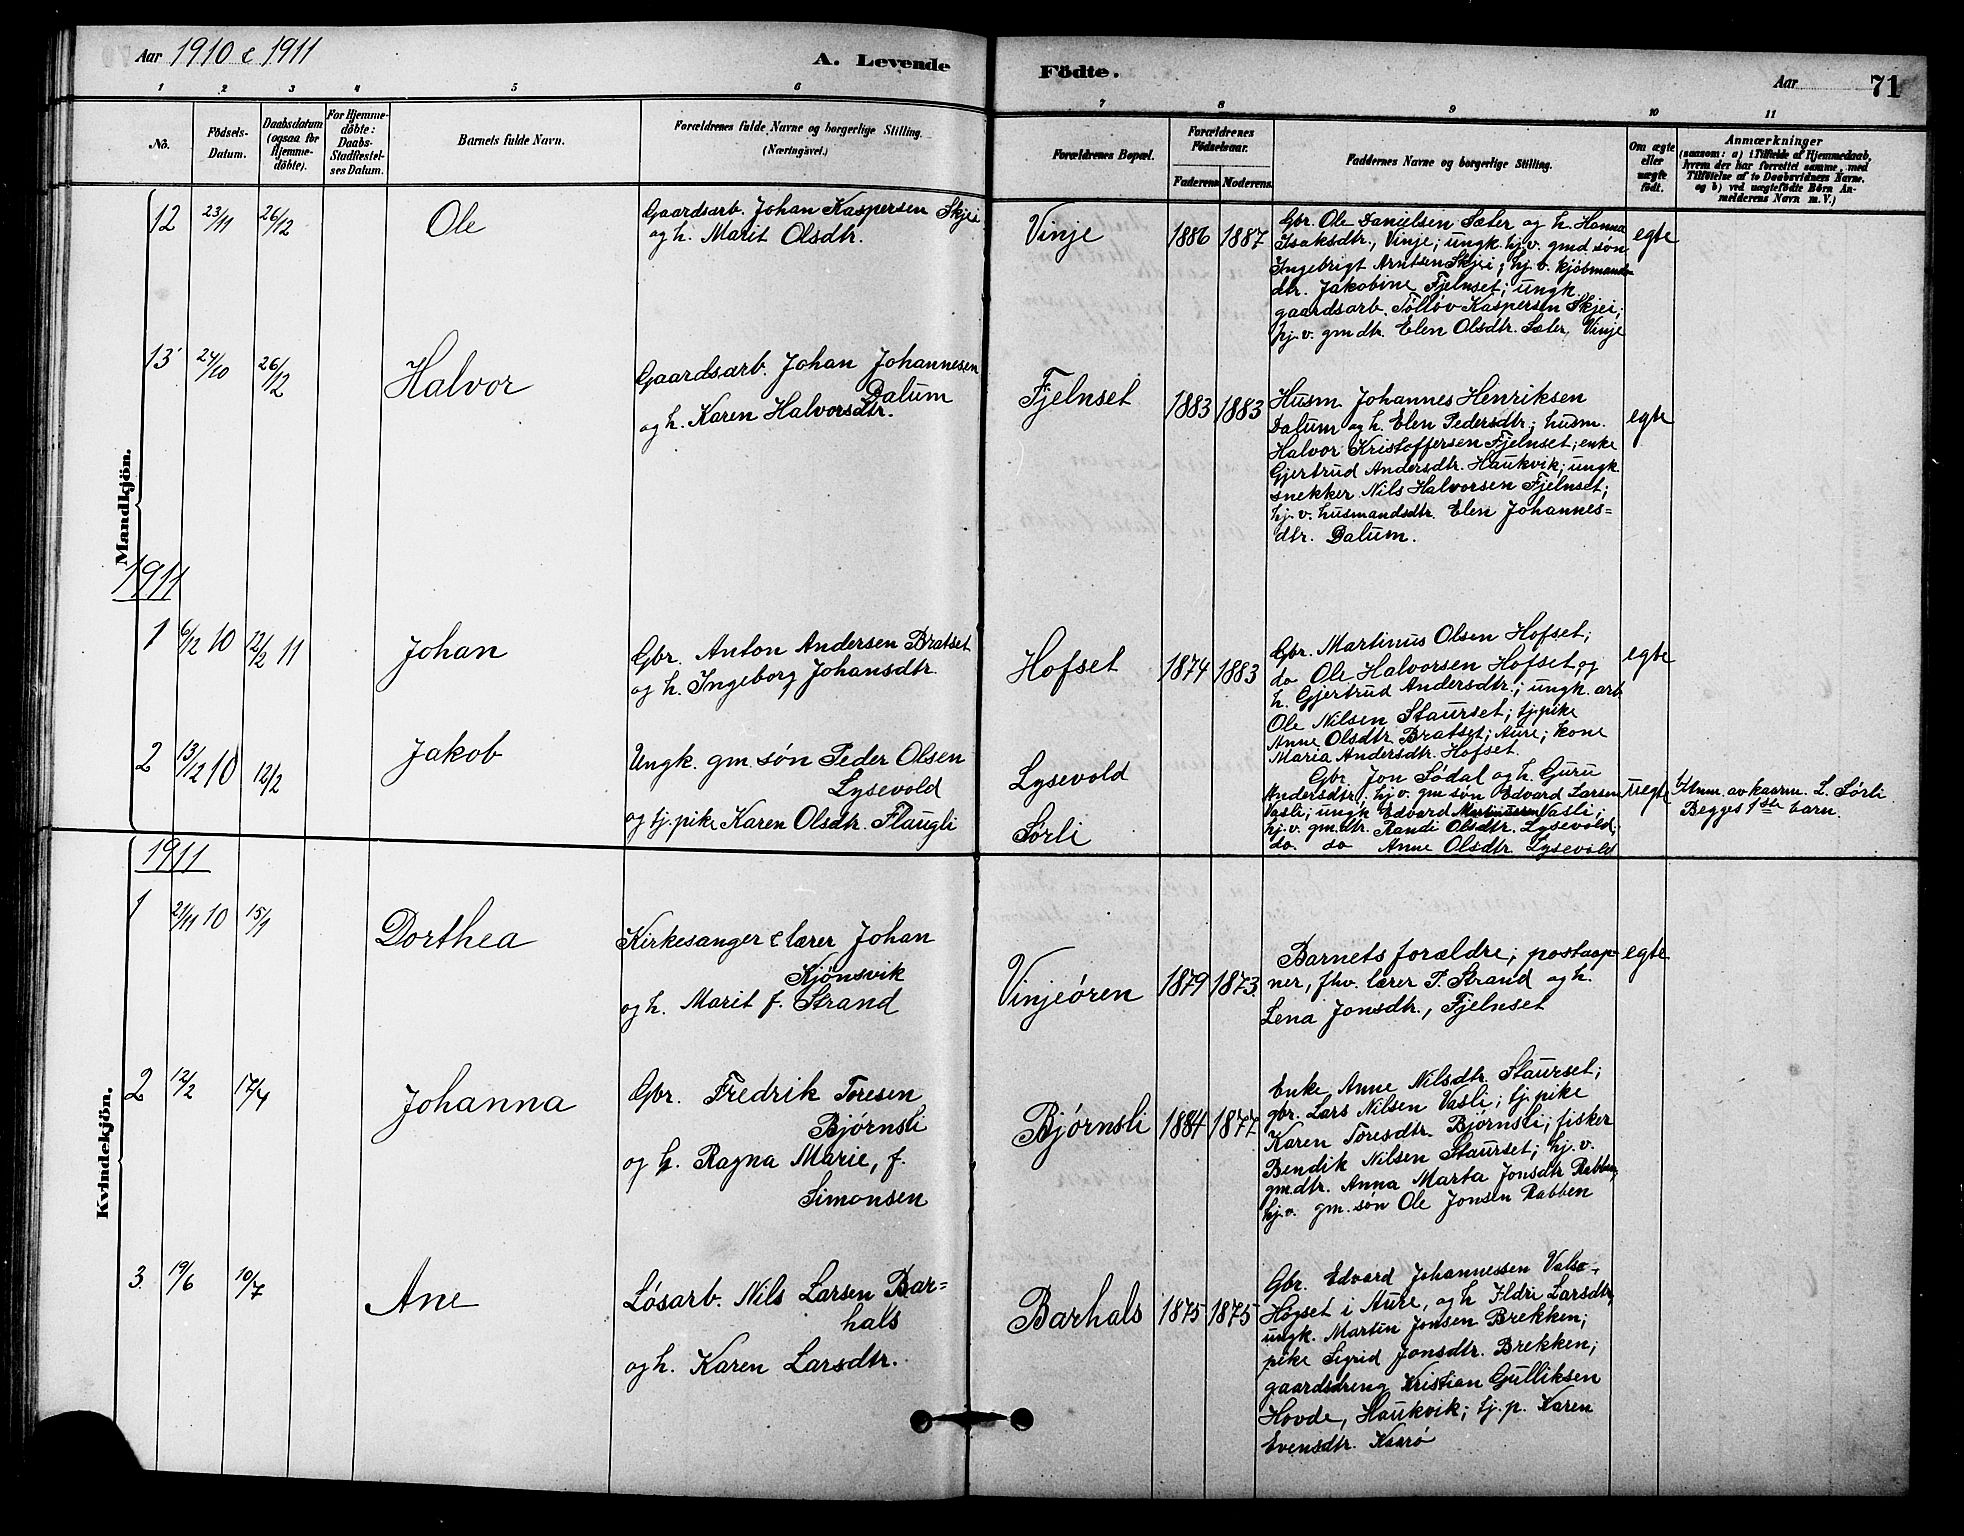 Aar 1910 & 1911
A. Levende
Födte.
Aar
71
1 2 3 4 5 6 7 8 9 10 11
No.
Födsels-
Datum.
Daabsdatum
(ogsaa for
Hjemme-
döbte).
For Hjemme-
döbte:
Daabs-
Stadfæstel-
ses Datum.
Barnets fulde Navn.
Forældrenes fulde Navne og borgerlige Stilling.
(Næringsvei.)
Forældrenes Bopæl.
Forældrenes
Födselsaar.
Faderens. Moderens.
Faddernes Navne og borgerlige Stilling.
Om ægte
eller
uægte
födt.
Anmærkninger
(saasom: a) i Tilfælde af Hjemmedaab,
hvem der har forrettet samme, med
Tilföielse af to Daabsvidners Navne,
og b) ved uægtefödte Börn An-
melderens Navn m. V.)
Mandkjön.
12 23/11 26/12
Ole
Gaardsarb. Johan Kaspersen Skjei
og h. Marit Olsdtr.
Vinje
1886 1887
Gbr. Ole Danielsen Sæter og h. Hanna
Isaksdtr., Vinje; ungk. hj.v. gmd søn
Ingebrigt Arntsen Skjei; hj.v. kjøbmands-
dtr. Jakobine Fjelnset; ungk.
gaardsarb. Tølløv Kaspersen Skjei;
hj.v. gmdtr. Elen Olsdtr. Sæter, Vinje
egte
13 24/10 26/12
Halvor
Gaardsarb. Johan Johannesen
Dalum
og h. Karen Halvorsdtr.
Fjelnset
1883 1883
Husm. Johannes Henriksen
Dalum og h. Elen Pedersdtr; husm.
Halvor Kristoffersen Fjelnset; enke
Gjertrud Andersdtr. Haukvik; ungk.
snekker Nils Halvorsen Fjelnset;
hj.v. husmandsdtr. Elen Johannes=
dtr. Dalum.
egte
1911
1 6/12 10 12/2 11
Johan
Gbr. Anton Andersen Bratset
og h. Ingeborg Johansdtr.
Hofset
1874 1883
Gbr. Martinus Olsen Hofset;
do Ole Halvorsen Hofset, og
h. Gjertrud Andersdtr.; ungk. arb
Ole Nilsen Staurset; tj.pike
Anne Olsdtr. Bratset, Aure; kone
Maria Andersdtr. Hofset.
egte
2 13/12 10 12/2
Jakob
Ungk. gm.søn Peder Olsen
Lysevold
og tj.pike Karen Olsdtr. Flaugli
Lysevold
Sørli
Gbr. Jon Sødal og h. Guru
Andersdtr; hj.v. gm søn Edvard Larsen
Vasli; ungk Edvard Martinusen Vasli;
hj.v. gm.dtr. Randi Olsdtr. Lysevold,
do do Anne Olsdtr Lysevold
uegte
Anm. av kaarm. L. Sørli
Begges 1ste barn.
Kvindekjön.
1911
1 21/11 10 15/1
Dorthea
Kirkesanger & lærer Johan
Kjønsvik
og h. Marit f. Strand
Vinjeøren
1879 1873.
Barnets forældre; postaap-
ner, fhv. lærer T. Strand og h.
Lena Jonsdtr., Fjelnset
egte
2 12/2 17/4
Johanna
Gbr. Fredrik Toresen
Bjørnsli
og h. Ragna Marie, f.
Simonsen
Bjørnsli
1884 1877
Enke Anne Nilsdtr. Staurset;
gbr. Lars Nilsen Vasli; tj.pike
Karen Toresdtr. Bjørnsli; fisker
Bendik Nilsen Staurset; hj.v.
gm.dtr. Anna Marta Jonsdtr Rabben,
hj.v. gm.søn Ole Jonsen Rabben
3. 19/6 10/7
Ane
Løsarb. Nils Larsen Bar=
hals
og h. Karen Larsdtr.
Barhals
1875 1875
Gbr. Edvard Johannessen Valsø-
Hogset i Aure, og h Ildri Larsdtr,
ungk. Martin Jonsen Brekken;
pike Sigrid Jonsdtr. Brekken;
gaardsdreng Kristian Gulliksen
Hovde, Haukvik; tj.p. Karen
Evensdtr. Kaarø